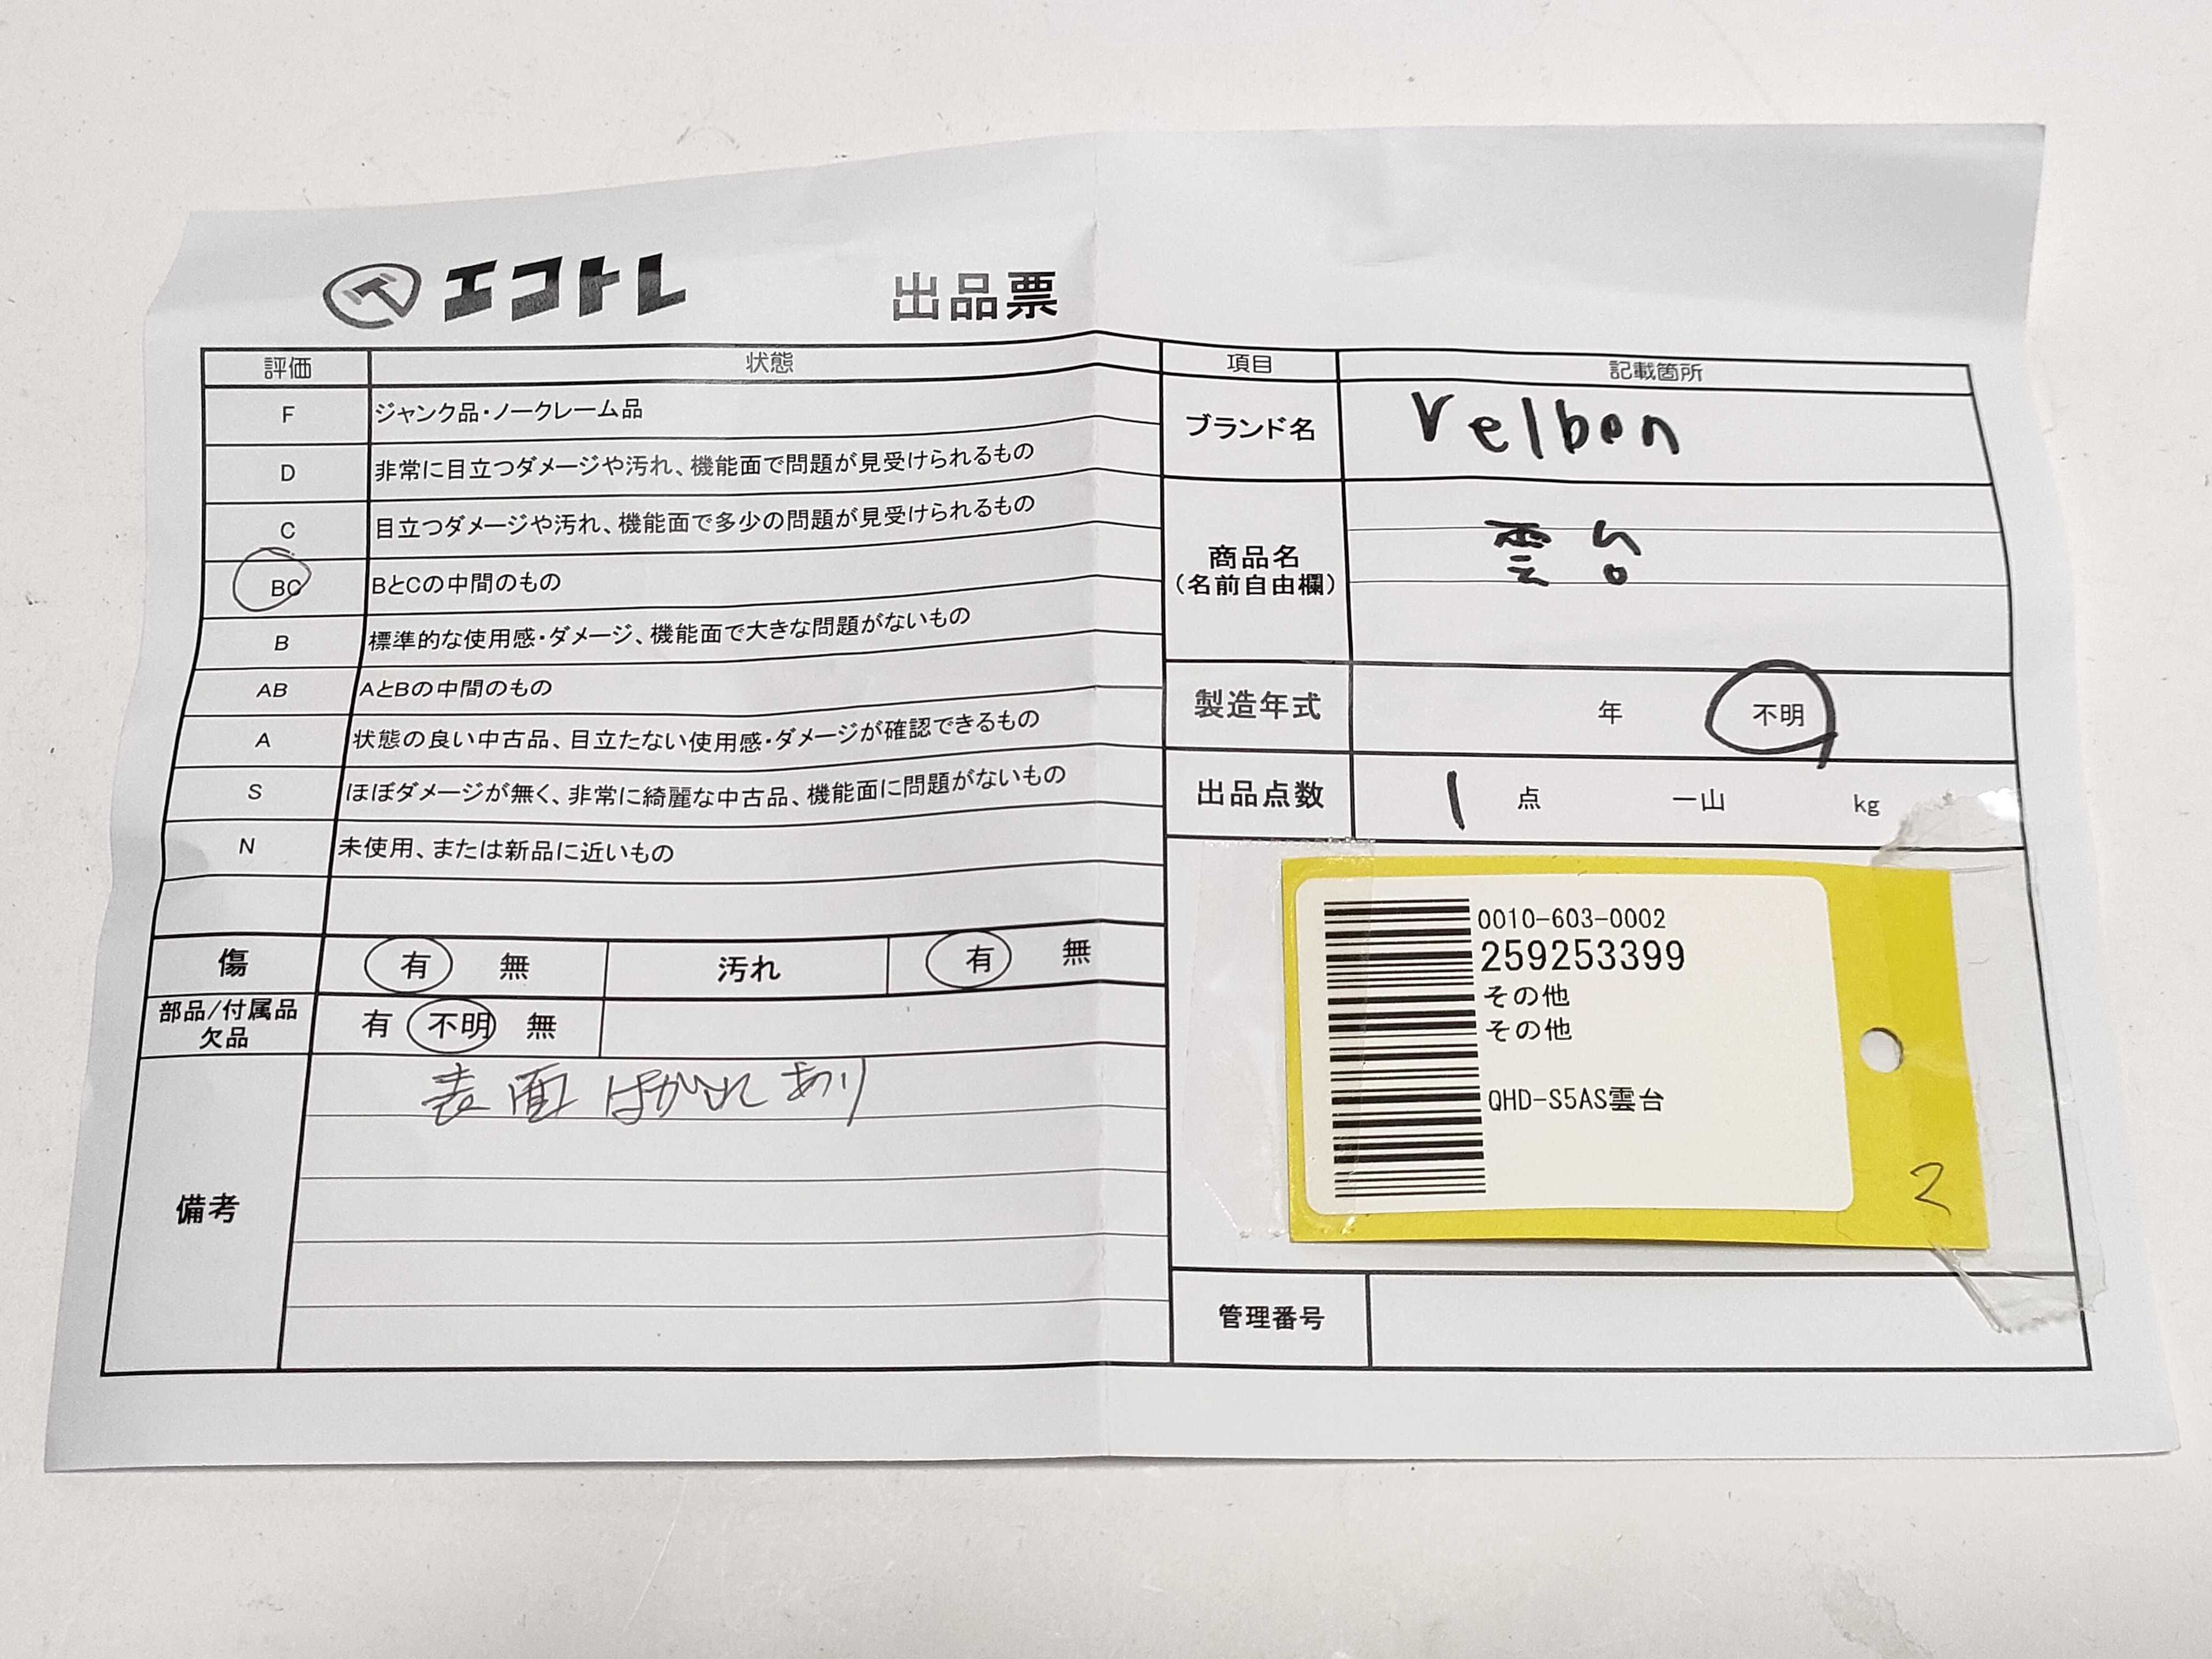 エコトレ 出品票
評価 状態
F ジャンク品・ノークレーム品
D 非常に目立つダメージや汚れ、機能面で問題が見受けられるもの
C 目立つダメージや汚れ、機能面で多少の問題が見受けられるもの
BC BとCの中間のもの
B 標準的な使用感・ダメージ、機能面で大きな問題がないもの
AB AとBの中間のもの
A 状態の良い中古品、目立たない使用感・ダメージが確認できるもの
S ほぼダメージが無く、非常に綺麗な中古品、機能面に問題がないもの
N 未使用、または新品に近いもの
傷 有 無 汚れ 有 無
部品/付属品
欠品 有 不明 無
備考 表面はがれあり
項目 記載箇所
ブランド名 Velbon
商品名
(名前自由欄) 雲台
製造年式 年 不明
出品点数 1 点 一山 kg
0010-603-0002
259253399
その他
その他
QHD-S5AS雲台
2
管理番号